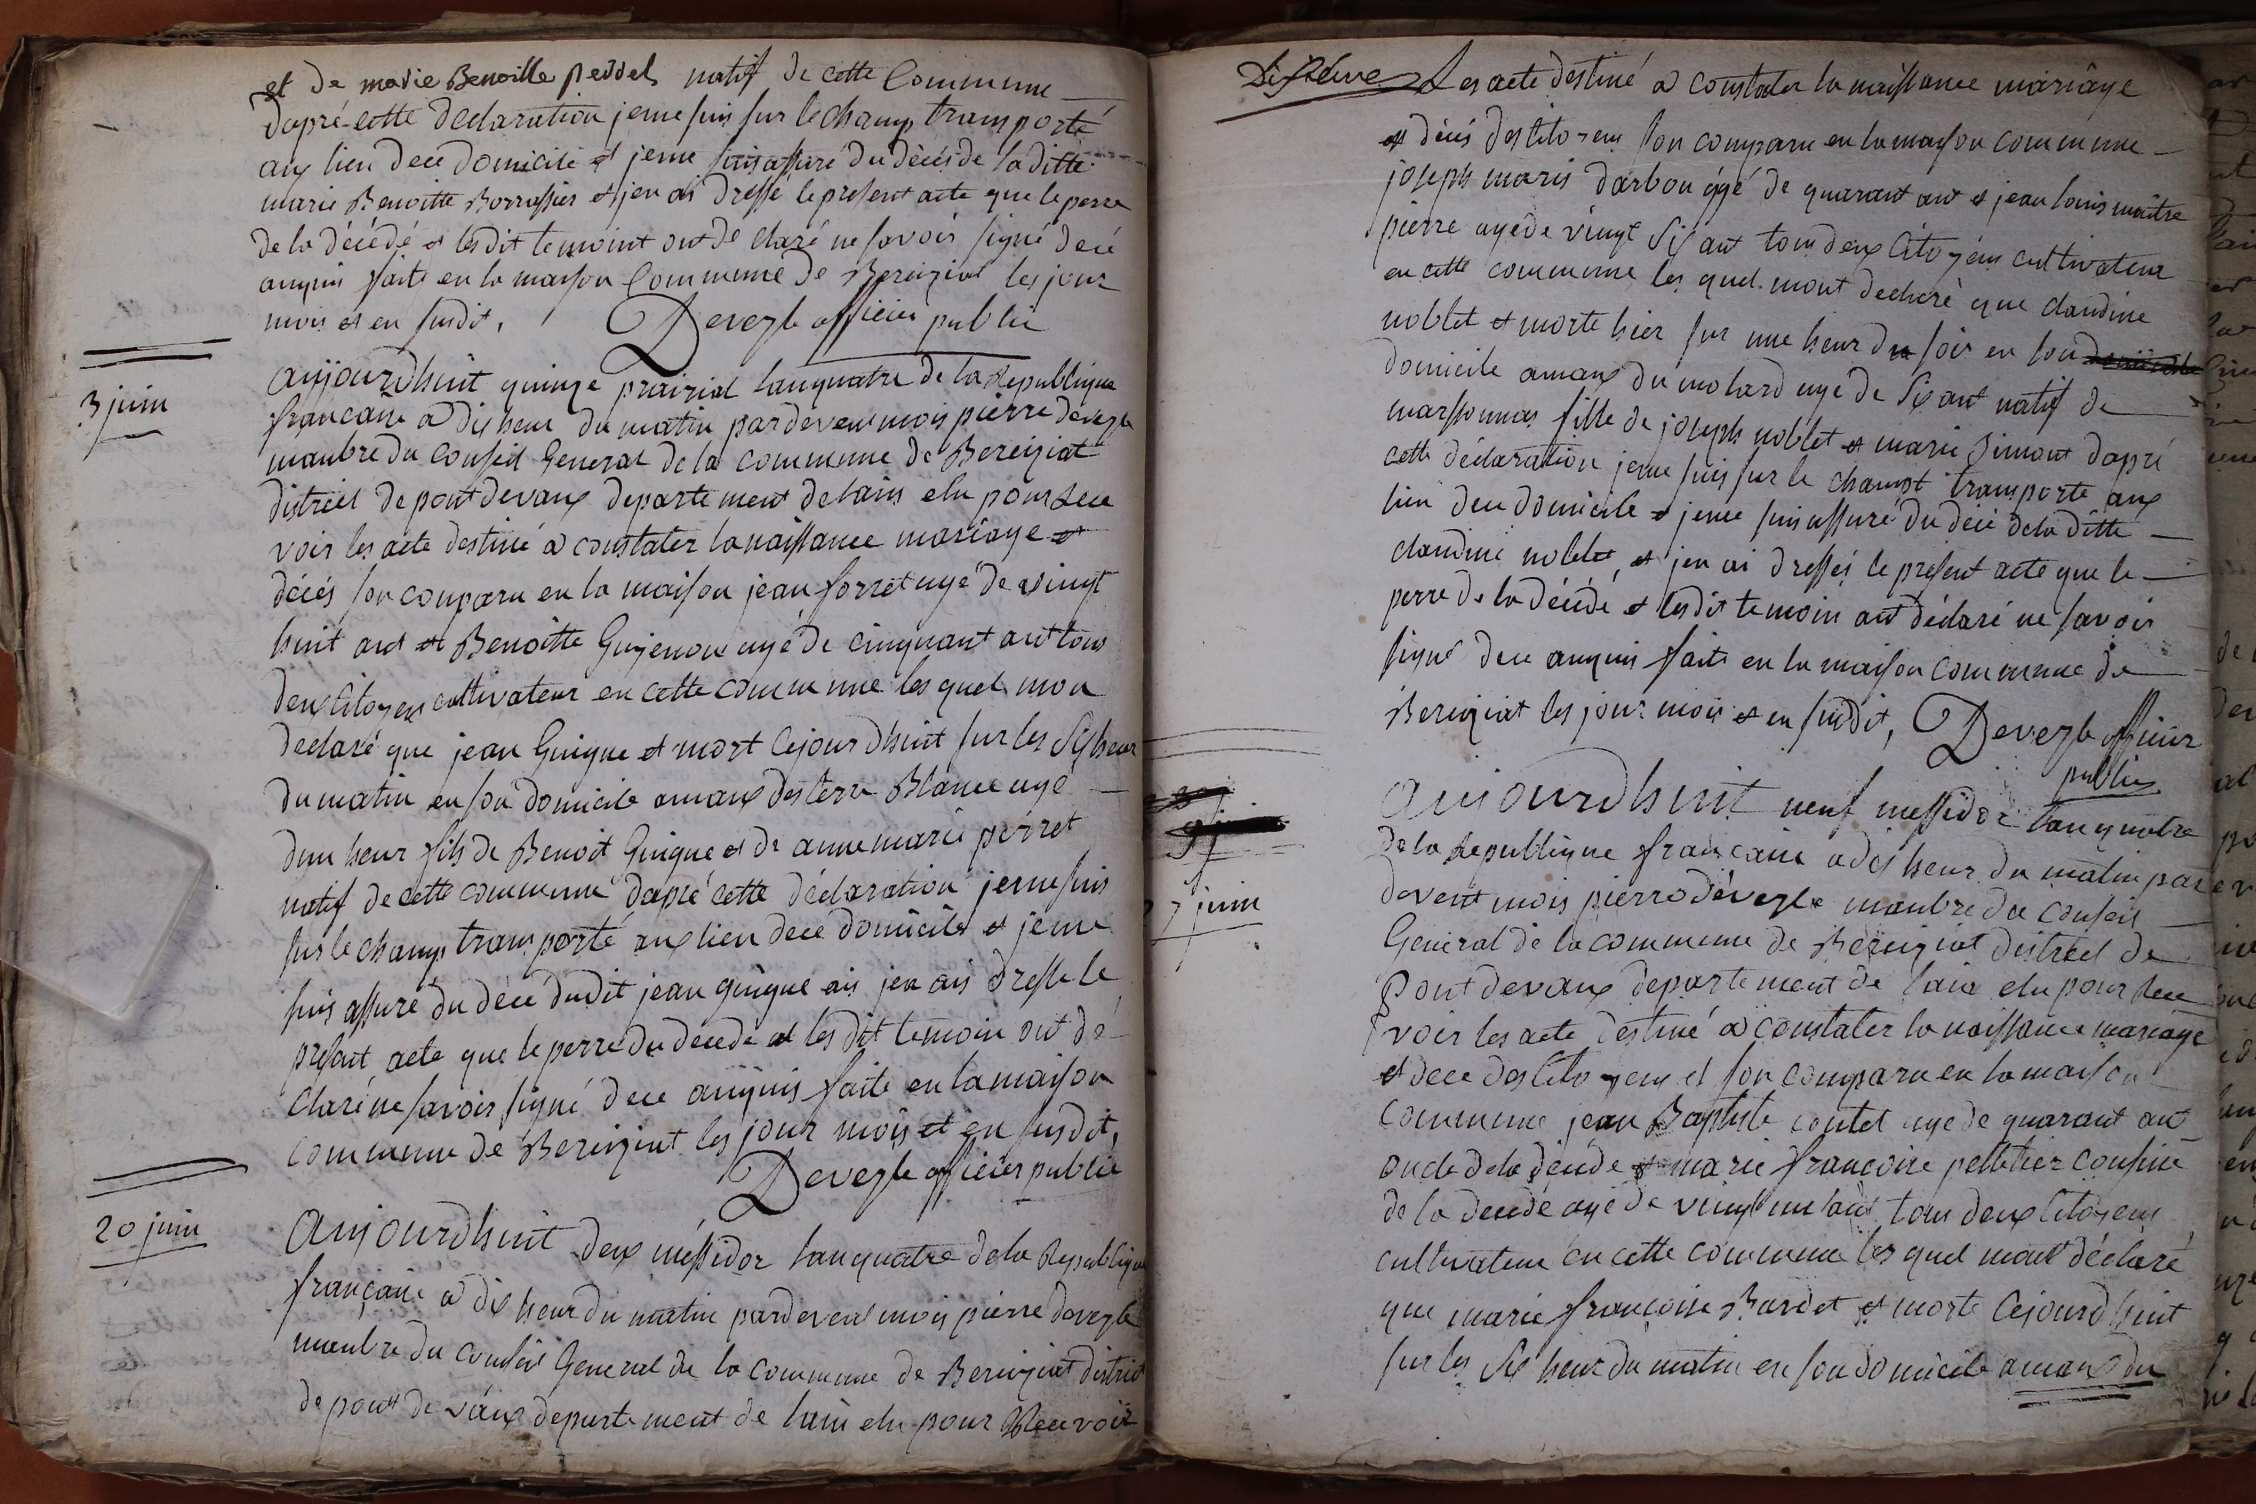 et de marie Benoille perdel natif de cette Commune
dapré cette declaration jeme suis sur le champ transporté
aux lieu dece domicile et jeme suis assuré du décés de laditte
marie Benoitte Borrossier et jen ai dressé le present acte que le perre
de la décédé et lesdit temoint ont dé claré ne savoir signé decé
anquis faite en la maison Commune de Bereiziat les jour
mois et en susdit, Devezle officier public
3 juin
aujourdhuit quinze prairial lanquatre de la Republique
francaise a dix heur du matin pardevent mois pierre devezle
manbre du conseil General de la commune de Bereiziat
district de pontdevaux departement de lains elu pour Rece
voir les acte destiné a constater la naissance mariage et
décés son conparu en la maison jean forret agé de vingt
huit ant et Benoitte Guyenon agé de cinquant ant tous
deux Citoyen cultivateur en cette commune les quel mon
declaré que jean Guigue et mort cejourdhuit sur les six heur
du matin en son domicile amaux des terre Blance agé
dun heur fils de Benoit Guigue et de anne marie perret
natif de cette commune dapré cette déclaration jeme suis
sur le champ transporté aux lieu dece domicile et jeme
suis assuré du decé dudit jean guigue ais jen ais dresse le
present acte que le perre du décedé et les dit temoin ont dé
claré ne savoir signé dece anquis faite en la maison
commune de Bereiziat les jour mois et en susdit,
Devezle officier public
20 juin
aujourdhuit deux messidor lanquatre de la Republique
française a dix heur du matin pardevent mois pierre devezle
manbre du conseil General de la commune de Bereiziat district
de pont de vaux departement de lain elu pour Recevoir
Les acte destiné a constater la naissance mariage
et décés des citoyens son comparu en la maison commune
joseph maris darbon agé de quarant ant et jean louis maitre
pierre agé de vingt six ant tous deux Citoyens cultivateur
en cette commune les quel mont declaré que claudine
noblet et morte hier sur une heur du soir en son
domicile amaux du molard agé de six ant natif de
marsonnas fille de joseph noblet et marie Simont dapré
cette déclaration jeme suis sur le champt transporte aux
lieu dece domicile et jeme suis assuré du décé de la ditte
claudine noblet, et jen ai dressés le present acte que le
perre de la décédé et lesdit temoin ant déclaré ne savoir
signé dece anquis faite en la maison commune de
Bereiziat les jour mois et en susdit, Devezle officier
public
7 juin
aujourdhuit neuf messidor lanquatre
de la Republique francaise a dix heur du matin par
devent mois pierre devezle manbre du conseil
General de la commune de Bereiziat district de
Pont devaux departement de lain elu pour Rece
voir les acte destiné a constater la naissance mariage
et dece des citoyens et son comparu en la maison
commune jean Baptiste contet agé de quarant ant
oncle de la décédé et marie francoise pelletier cousine
de la décédé agé de vingt un ant tous deux Citoyens
cultivateur en cette commune les quel mont déclaré
que marie francoise Bardet et morte cejourdhuit
sur les six heur du matin en son domicile amaux du